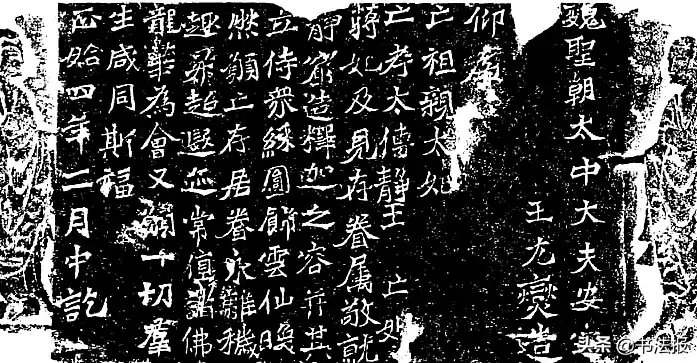 魏聖朝太中大夫安定
王元燮造
仰爲
亡祖親太妃
亡考太傅靜王 亡妣
蔣妃及見存眷属敬就
静窟造釋迦之容并其
立侍衆綵圓飾雲仙㬇
然願亡存居眷永離穢
趣升超遐迹常值諸佛
龍華為會又願一切羣
生咸同斯福
正始四年二月中訖
头条 @书法报